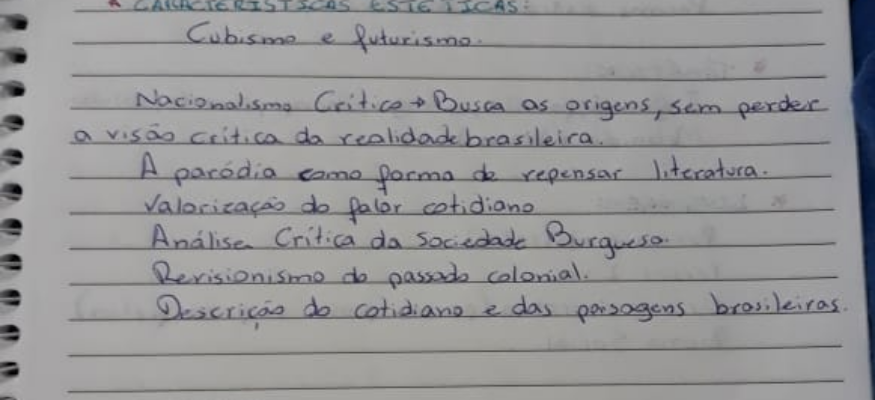 * CARACTERÍSTICAS ESTÉTICAS:
Cubismo e futurismo.
Nacionalismo Crítico → Busca as origens, sem perder
a visão crítica da realidade brasileira.
A paródia como forma de repensar literatura.
Valorização do falar cotidiano
Análise Crítica da Sociedade Burguesa.
Revisionismo do passado colonial.
Descrição do cotidiano e das paisagens brasileiras.